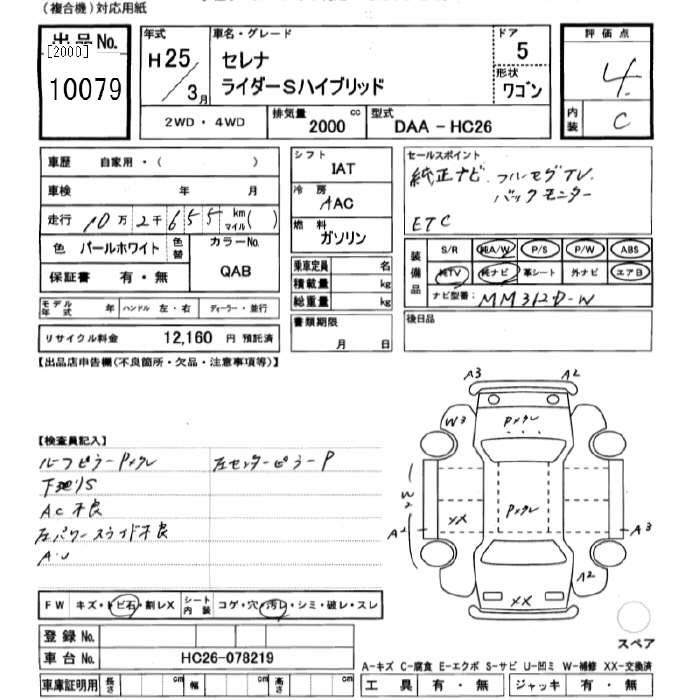 (複合機)対応用紙
出品No. [2000] 10079
年式 H25/3月
車名・グレード セレナ ライダーSハイブリッド
ドア 5
形状 ワゴン
評価点 4.
内装 C
2WD・4WD
排気量 2000 cc
型式 DAA - HC26
車歴 自家用・( )
車検 年 月
走行 10万2千655 km マイル( )
色 パールホワイト 色替
カラーNo. QAB
保証書 有・無
モデル年式 年 ハンドル 左・右 ディーラー・並行
リサイクル料金 12,160 円 預託済
シフト IAT
冷房 AAC
燃料 ガソリン
乗車定員 名
積載量 kg
総重量 kg
書類期限 月 日
セールスポイント
純正ナビ フルセグTV
バックモニター
ETC
装備品 S/R 純A/W P/S P/W ABS
純TV 純ナビ 革シート 外ナビ エアB
ナビ型番: MM312D-W
後日品
【出品店申告欄(不良箇所・欠品・注意事項等)】
【検査員記入】
ルーフピラーPメクレ 左センターピラーP
下廻りS
AC不良
左パワースライド不良
A・U
A3 A2
W3 Pメクレ
W2 XX Pメクレ
A2 A3
A2
XX
スペア
FW キズ・トビ石・割レX シート内装 コゲ・穴・汚レ・シミ・破レ・スレ
登録No.
車台No. HC26-078219
車庫証明用 長さ cm 幅 cm 高さ cm
A-キズ C-腐食 E-エクボ S-サビ U-凹ミ W-補修 XX-交換済
工具 有・無 ジャッキ 有・無